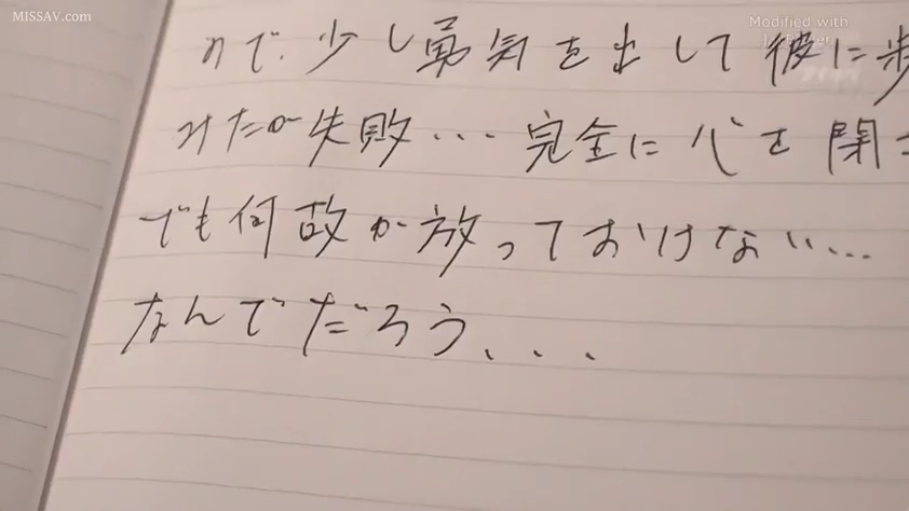 MISSAV.com
Modified with
ので、少し勇気を出して彼に歩
みたが失敗…完全に心を閉
でも何故か放っておけない…
なんでだろう、、、